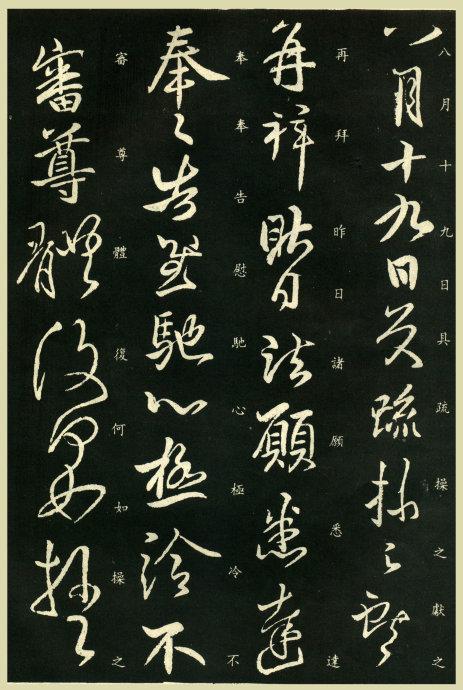 八月十九日具疏操之獻之
八月十九日具疏操之獻之
再拜昨日諸願悉達
再拜昨日諸願悉達
奉奉告慰馳心極冷不
奉々告慰馳心極冷不
審尊體復何如操之
審尊體復何如操之